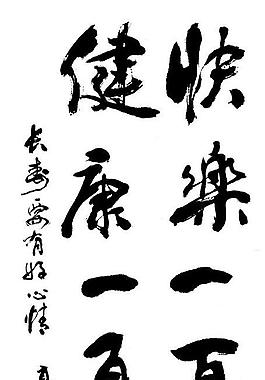 快樂一百
健康一百
長壽要有好心情